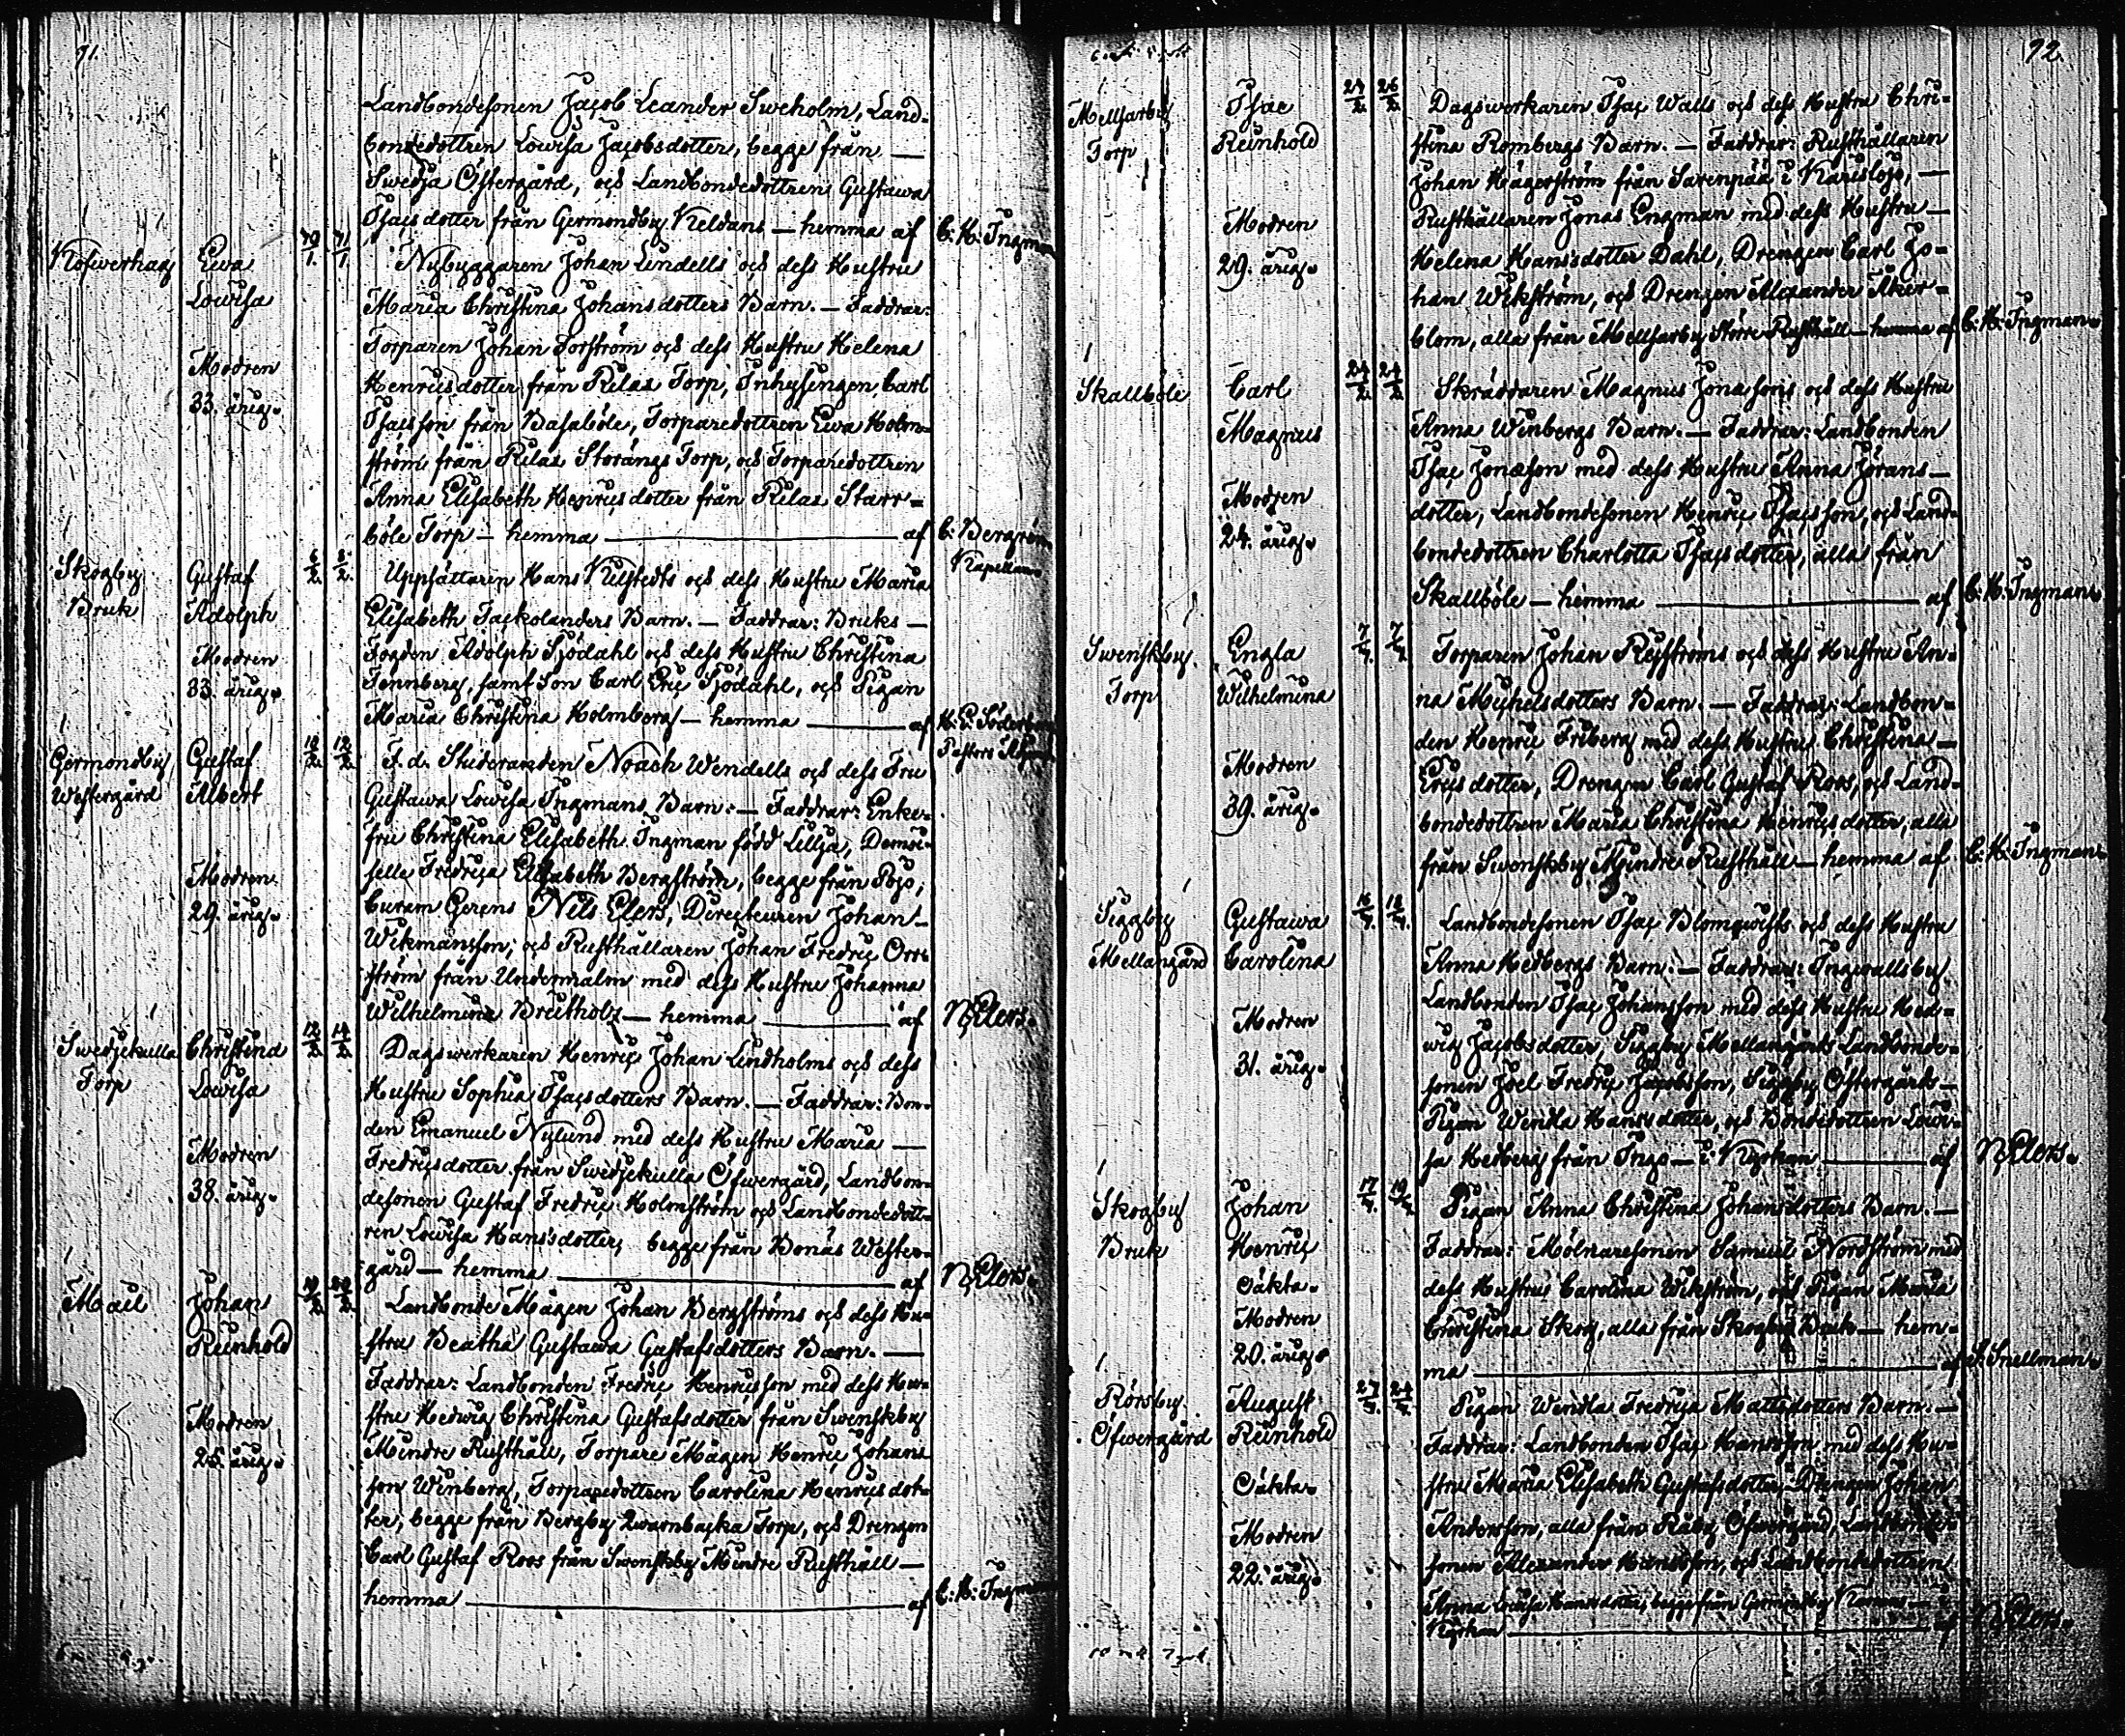 91.
Landbondesonen Jacob Leander Sweholm, Land-
bondedottren Lowisa Jacobsdotter, begge från —
Swedja Östergård, och Landbondedottren Gustawa
Isacsdotter från Germondby Keldans — hemma af C: H: Ingman
Ewa Nybyggaren Johan Lindells och dess Hustru
Lowisa Maria Christina Johansdotters Barn. — Faddrar:
Torparen Johan Forström och dess Hustru Helena
Modren Henricsdotter från Rilax Torp, Inhysingen Carl
33. årig. Isacsson från Basaböle, Torparedottren Ewa Holm-
ström från Rilax Storängs Torp, och Torparedottren
Anna Elisabeth Henricsdotter från Rilax Starr-
böle Torp — hemma — af C: Bergroth
Kapellan
Skogby Gustaf 6/2. 8/2. Uppsättaren Hans Kilstedts och dess Hustru Maria
Bruk Adolph Elisabeth Tackolanders Barn. — Faddrar: Bruks —
Modren Fogden Adolph Sjödahl och dess Hustru Christina
33. årig. Tennberg, samt Son Carl Eric Sjödahl, och Pigan
Maria Christina Holmberg — hemma — af
Germondby Gustaf F. d. Studeranden Noach Wendells och dess Fru
Westergård Albert Gustawa Lowisa Ingmans Barn: — Faddrar: Enke-
fru Christina Elisabeth Ingman född Lillja, Demoi-
Modren selle Fredrica Elisabeth Bergström, begge från Pojo,
29. årig. Curam Gerens Nils Elers, Directeuren Johan
Wikmansson, och Rusthållaren Johan Fredric Orr-
ström från Undermalm med dess Hustru Johanna
Wilhelmina Breitholz — hemma — af N. Elers.
Swedjekulla Christina 12/2. 14/2. Dagswerkaren Henric Johan Lindholms och dess
Torp Lowisa Hustru Sophia Isacsdotters Barn. — Faddrar: Bon-
den Emanuel Nylund med dess Hustru Maria —
Modren Fredricsdotter från Swedjekulla Öfwergård, Landbon-
38. årig. desonen Gustaf Fredric Holmström och Landbondedott-
ren Lowisa Hansdotter, begge från Bonäs Wester-
gård — hemma — af N. Elers.
Johan Landbonde Mågen Johan Bergströms och dess Hu-
Reinhold stru Beatha Gustawa Gustafsdotters Barn. —
Faddrar: Landbonden Fredric Henricsson med dess Hu-
Modren stru Hedwig Christina Gustafsdotter från Swenskby
25. årig. Mindre Rusthåll, Torpare Mågen Henric Johans
son Winberg, Torparedottren Carolina Henricsdot-
ter, begge från Bergby Qwarnbacka Torp, och Drengen
Carl Gustaf Roos från Swenskby Mindre Rusthåll —
hemma — af C: H: Ingman
92.
Mellsarby Isac 24/2. 26/2. Dagswerkaren Isac Walls och dess Hustru Chri-
Torp Reinhold stina Rombergs Barn. — Faddrar: Rusthållaren
Johan Hägerström från Sarenpää i Karislojo, —
Modren Rusthållaren Jonas Engman med dess Hustru —
29. årig. Helena Hansdotter Dahl, Drengen Carl Jo-
han Wikström, och Drengen Alexander Åker-
blom, alla från Mellsarby Större Rusthåll — hemma af C: H: Ingman.
Skallböle Carl 24/2. 24/2. Skräddaren Magnus Jonassons och dess Hustru
Magnus Anna Winbergs Barn. — Faddrar: Landbonden
Isac Jonasson med dess Hustru Anna Jörans —
Modren dotter, Landbondesonen Henric Isacsson, och Land-
24. årig. bondedottren Charlotta Isacsdotter, alla från
Skallböle — hemma — af C: H: Ingman.
Swenskby Engla Torparen Johan Rejströms och dess Hustru An-
Torp Wilhelmina na Michelsdotters Barn. — Faddrar: Landbon-
den Henric Friberg med dess Hustru Christina —
Modren Ericsdotter, Drengen Carl Gustaf Roos, och Land-
39. årig. bondedottren Maria Christina Henricsdotter, alla
från Swenskby Mindre Rusthåll — hemma af C: H: Ingman.
Siggby Gustawa Landbondesonen Isac Blomqwists och dess Hustru
Mellangård Carolina Anna Hedbergs Barn. — Faddrar: Ingwallsby
Landbonden Isac Johansson med dess Hustru Hed-
Modren wig Jacobsdotter, Siggby Mellangårds Landbonde-
31. årig. sonen Joel Fredric Jacobsson, Siggby Östergårds —
Pigan Wendla Hansdotter, och Bondedottren Lowi-
sa Hedberg från Ingo — i Kyrkan — af N. Elers.
Skogby Johan Pigan Anna Christina Johansdotters Barn. —
Bruk Henric Faddrar: Mölnaresonen Samuel Nordström med
Oäkta. dess Hustru Carolina Wikström, och Pigan Maria
Modren Christina Skog, alla från Skogby Bruk — hem-
20. årig. ma — af Snellman.
Rörsby August Pigan Wendla Fredrica Mattsdotters Barn. —
Öfwergård Reinhold Faddrar: Landbonden Isac Hansson med dess Hu-
Oäkta. stru Maria Elisabeth Gustafsdotter, Drengen Johan
Modren Andersson, alla från Råby Öfwergård, Landbonde-
22. årig. sonen Alexander Hansson, och Landbondedottren
Anna Lowisa Hansdotter, begge från Germondby —
Kyrkan — af N. Elers.